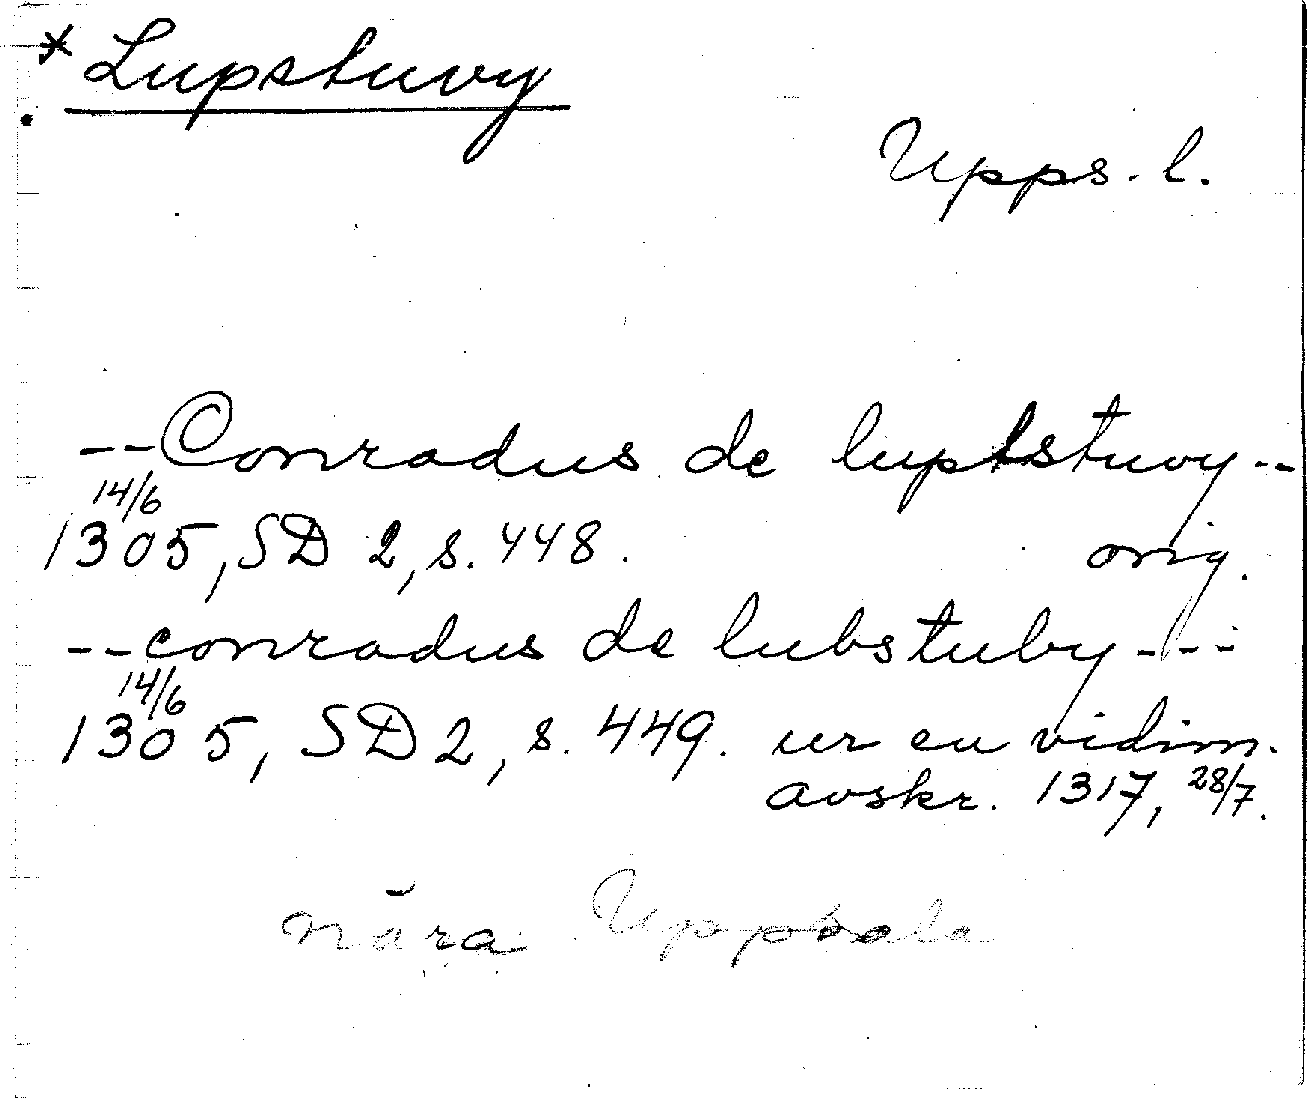 * Lupstuvy
Upps. l.
-- Conradus de lupstuvy --
14/6
1305, SD 2, s. 448. orig.
-- conradus de lubstuby ---
14/6
1305, SD 2, s. 449. ur en vidim.
avskr. 1317, 28/7.
nära Uppsala